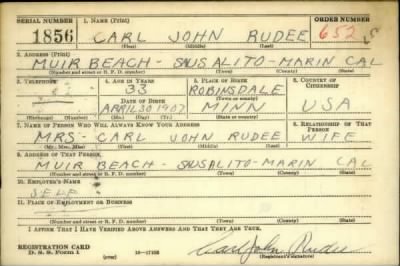 SERIAL NUMBER 1. NAME (Print) ORDER NUMBER
1856 CARL JOHN RUDEE 652
(First) (Middle) (Last)
2. ADDRESS (Print)
MUIR BEACH - SAUSALITO - MARIN CAL
(Number and street or R. F. D. number) (Town) (County) (State)
3. TELEPHONE 4. AGE IN YEARS 5. PLACE OF BIRTH 6. COUNTRY OF CITIZENSHIP
33 ROBINSDALE
DATE OF BIRTH (Town or county)
APRIL 30 1907 MINN USA
(Exchange) (Number) (Mo.) (Day) (Yr.) (State or country)
7. NAME OF PERSON WHO WILL ALWAYS KNOW YOUR ADDRESS 8. RELATIONSHIP OF THAT PERSON
MRS - CARL JOHN RUDEE WIFE
(Mr., Mrs., Miss) (First) (Middle) (Last)
9. ADDRESS OF THAT PERSON
MUIR BEACH - SAUSALITO - MARIN CAL
(Number and street or R. F. D. number) (Town) (County) (State)
10. EMPLOYER'S NAME
SELF
11. PLACE OF EMPLOYMENT OR BUSINESS
(Number and street or R. F. D. number) (Town) (County) (State)
I AFFIRM THAT I HAVE VERIFIED ABOVE ANSWERS AND THAT THEY ARE TRUE.
REGISTRATION CARD
D. S. S. FORM 1 (over) Carl John Rudee
(Registrant's signature)